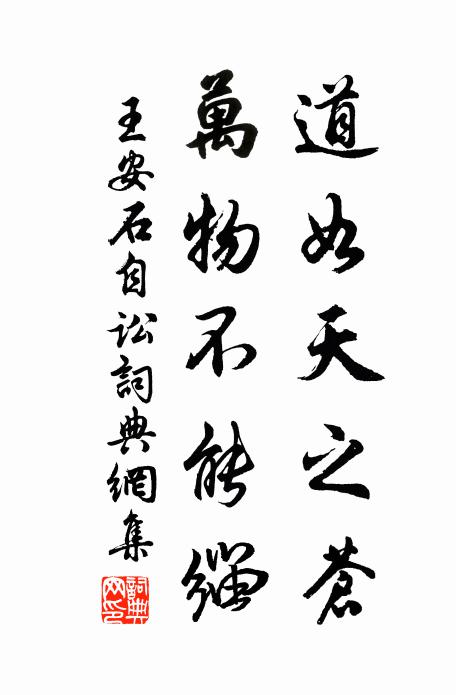 道如天之蒼
萬物不能緇
王安石自訟詞典網集
詞典網印